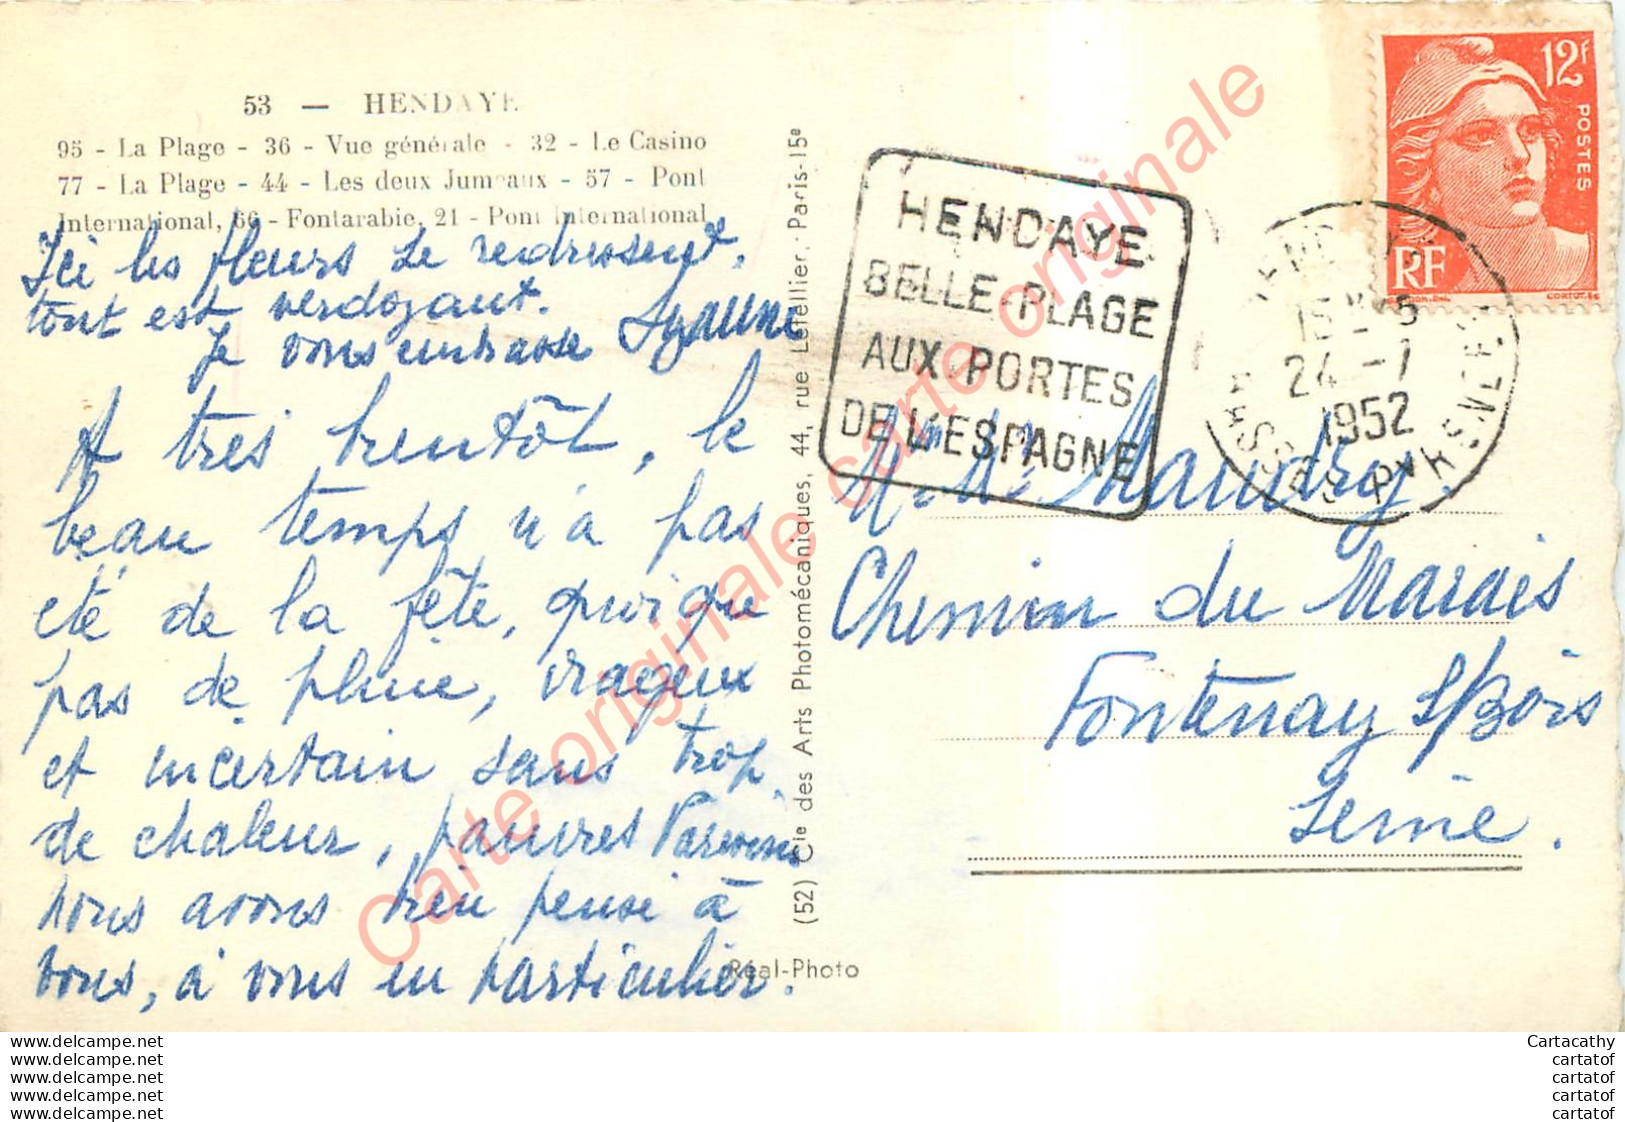 53 — HENDAYE
95 - La Plage - 36 - Vue générale - 32 - Le Casino
77 - La Plage - 44 - Les deux Jumeaux - 57 - Pont
International, 66 - Fontarabie, 21 - Pont International
Ici les fleurs se redressent.
tout est verdoyant.
Je vous embrasse Suzanne
A très bientôt, le
beau temps n'a pas
été de la fête, quoique
pas de pluie, orageux
et incertain sans trop
de chaleur, pauvres Parisiens
nous avons bien pensé à
vous, à vous en particulier.
(52) Cie des Arts Photomécaniques, 44, rue Letellier, Paris-15e
Réal-Photo
HENDAYE
BELLE PLAGE
AUX PORTES
DE L'ESPAGNE
12f
POSTES
RF
HENDAYE
24 - 7
1952
BSSES PYRENEES
Maudry.
Chemin du Marais
Fontenay s/Bois
Seine.
Carte originale carte originale carte originale
black white movie
black white movie
black white movie
black white movie
black white movie
Cartacathy
cartatof
cartatof
cartatof
cartatof